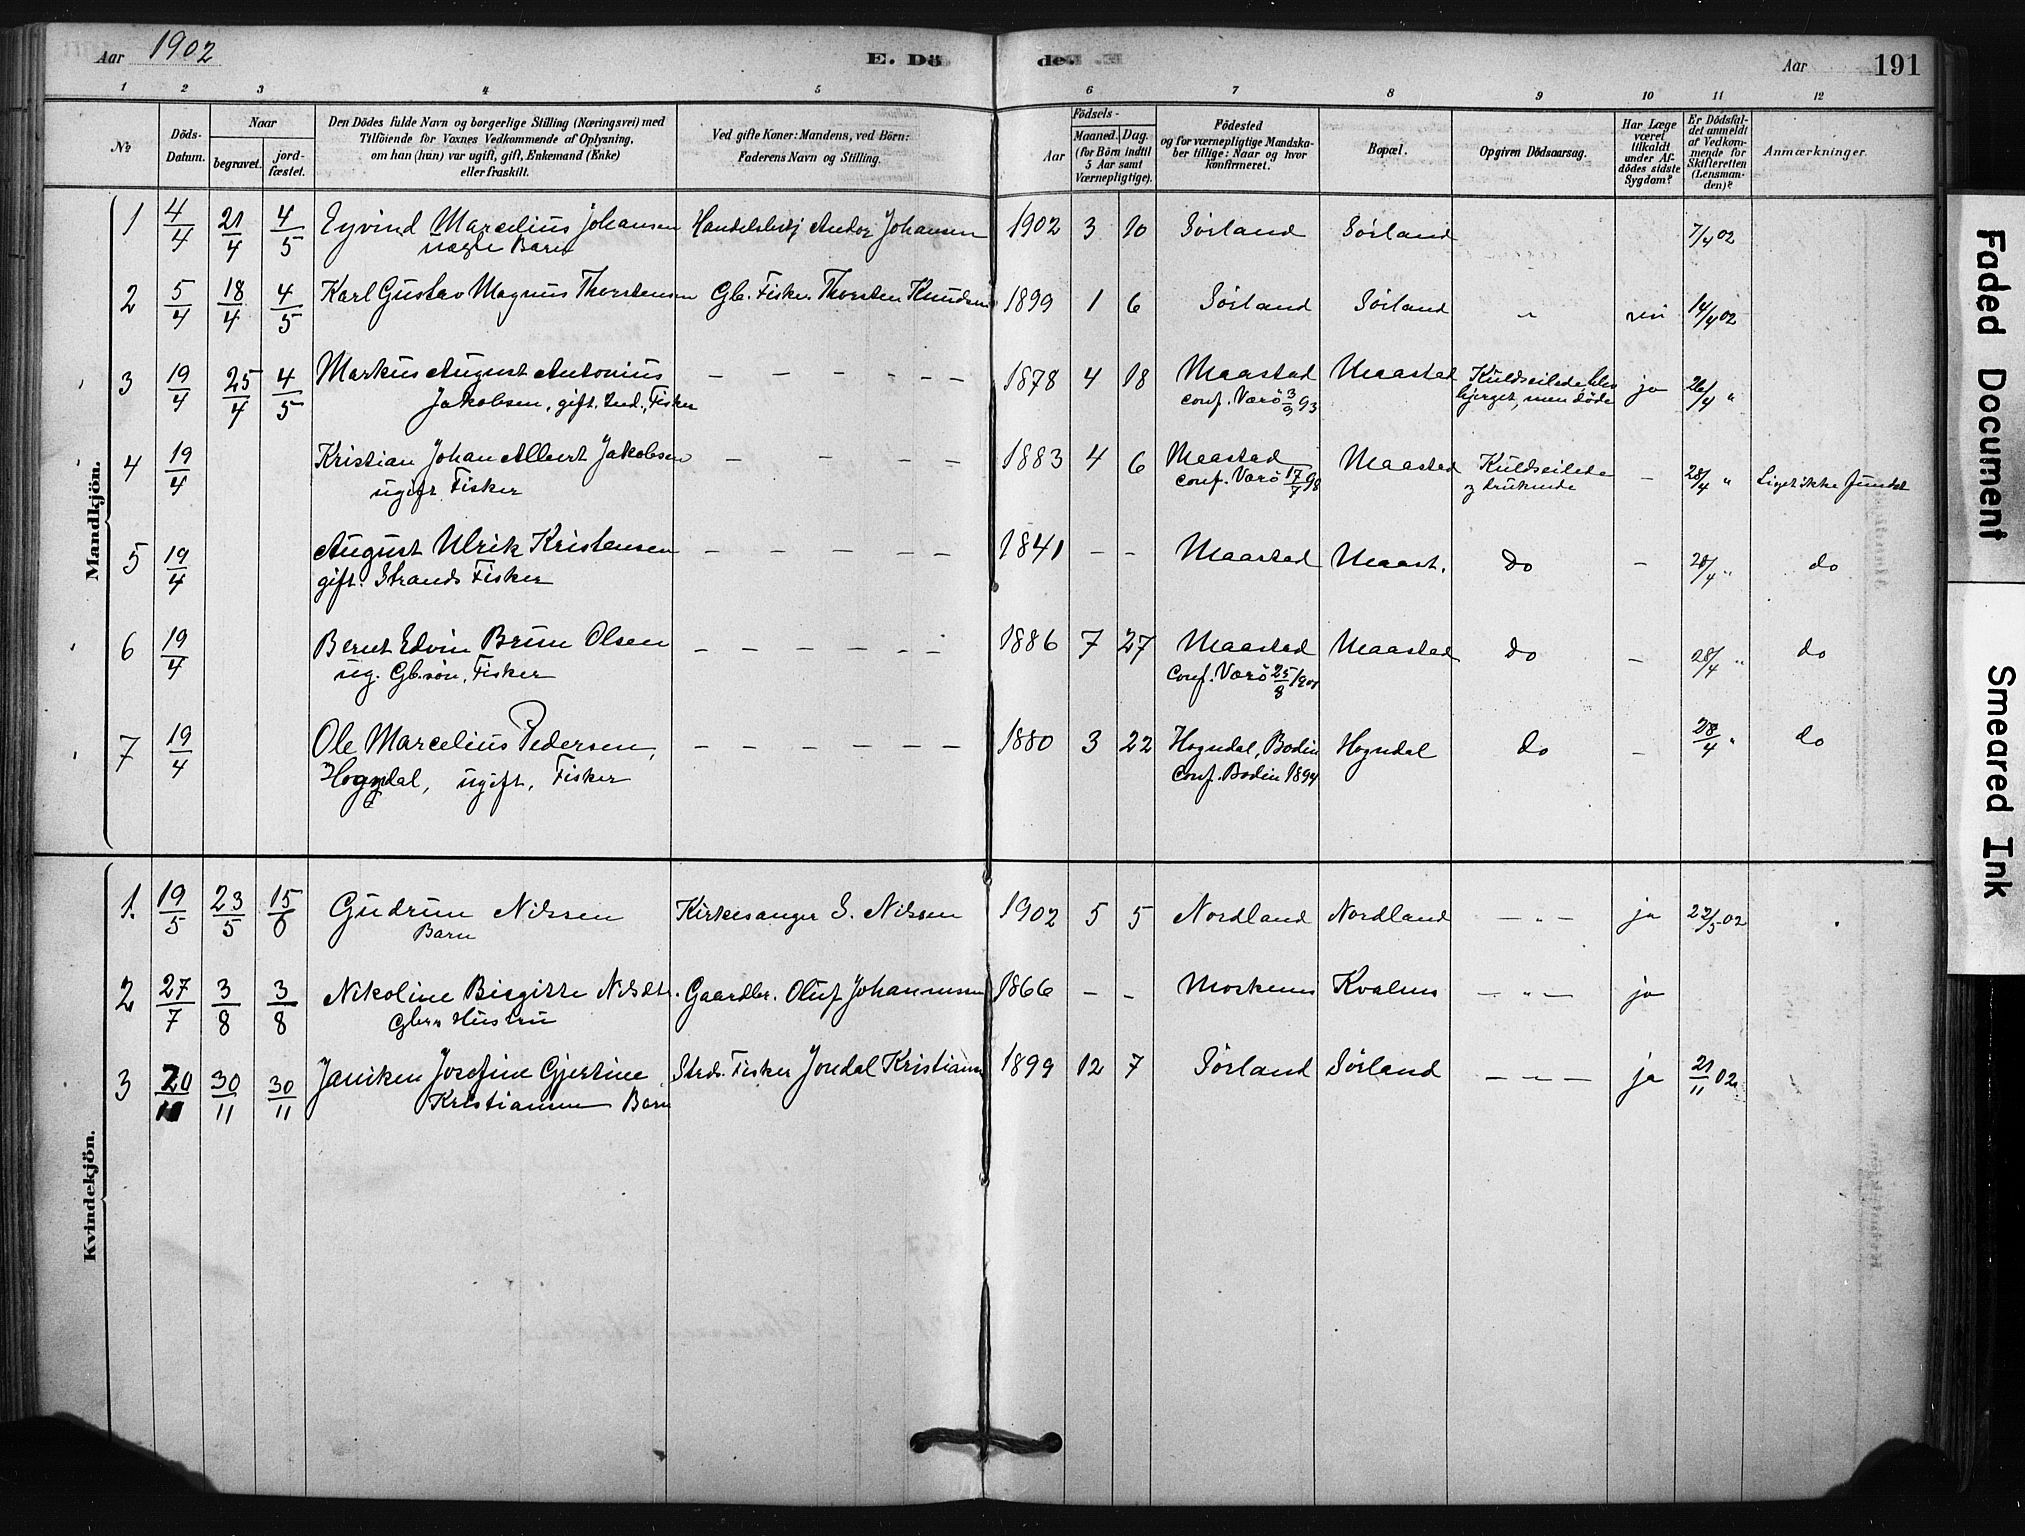 Aar 1902 E. Dö de. Aar 191
1 2 3 4 5 6 7 8 9 10 11 12
№ Döds-Datum. Naar begravet. jord-fæstet.
Den Dödes fulde Navn og borgerlige Stilling (Næringsvei) med
Tilföiende for Voxnes Vedkommende af Oplysning,
om han (hun) var ugift, gift, Enkemand (Enke)
eller fraskilt.
Ved gifte Koner: Mandens, ved Börn:
Faderens Navn og Stilling.
Födsels-
Aar Maaned. Dag.
(for Börn indtil
5 Aar samt
Værnepligtige).
Födested
og for værnepligtige Mandska-
ber tillige: Naar og hvor
konfirmeret.
Bopæl.
Opgiven Dödsaarsag.
Har Læge
været
tilkaldt
under Af-
dödes sidste
Sygdom?
Er Dödsfal-
det anmeldt
af Vedkom-
mende for
Skifteretten
(Lensman-
den)?
Anmærkninger.
Mandkjön.
1 4/4 21/4 4/5 Eyvind Marcelius Johansen Andor Johansen 1902 3 10 Sörland Sörland 7/4 02
Barn
2 5/4 18/4 4/5 Karl Gustav Magnus Thorstensen Gb. Fisker Thorsten Knudsen 1899 1 6 Sörland Sörland " nei 14/4 02
3 19/4 25/4 4/5 Markus August Antonius – – – – – – 1878 4 18 Maastad Maastad Kuldseilede, blev ja 26/4 "
Jakobsen, gift. Ind., Fisker conf. Værö 3/9 93 bjerget, men döde
4 19/4 Kristian Johan Albert Jakobsen – – – – – 1883 4 6 Maastad Maastad Kuldseilede – 28/4 " Liget ikke fundet
ugift Fisker conf. Værö 17/7 98 og druknede
5 19/4 August Ulrik Kristensen – – – – – 1841 – – Maastad Maast. Do – 28/4 " do
gift. Strands. Fisker
6 19/4 Bernt Edvin Brun Olsen – – – – – – 1886 7 27 Maastad Maastad Do – 28/4 " do
ug. Gb. sön, Fisker Conf. Værö 25/8 1901
7 19/4 Ole Marcelius Pedersen, – – – – – – 1880 3 22 Hogndal, Bodin Hogndal Do – 28/4 " do
Hogndal, ugift, Fisker Conf. Bodin 1894
Kvindekjön.
1. 19/5 23/5 15/6 Gudrun Nilssen Kirkesanger S. Nilssen 1902 5 5 Nordland Nordland – " – ja 22/5 02
Barn
2 27/7 3/8 3/8 Nikoline Birgitte Nilsdtr. Gaardbr. Oluf Johannessen 1866 – – Moskenes Kvalnes – " – ja
Gbrs Hustru
3 20/11 30/11 30/11 Janiken Josefine Gjertine Strds. Fisker Jondal Kristiansen 1899 12 7 Sörland Sörland – " – ja 21/11 02
Kristiansen Barn
Faded Document
Smeared Ink